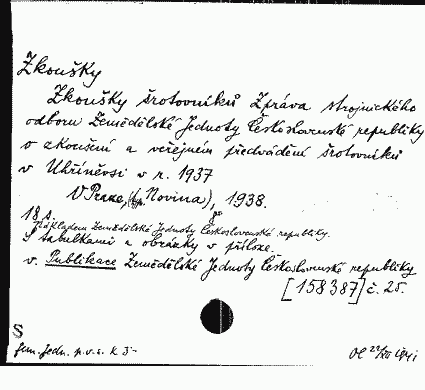 Zkoušky
Zkoušky šrotovníků Zpráva strojnického
odboru Zemědělské Jednoty Československé republiky
o zkoušení a veřejném předvádění šrotovníků
v Uhříněvsi v r. 1937
V Praze, Novina), 1938.
18 s. 8°
Nákladem Zemědělské Jednoty Československé republiky.
S tabulkami a obrázky v příloze.
v. Publikace Zemědělské Jednoty Československé republiky
[158387] č. 25.
S
Jedn. p.v.s. K 5-